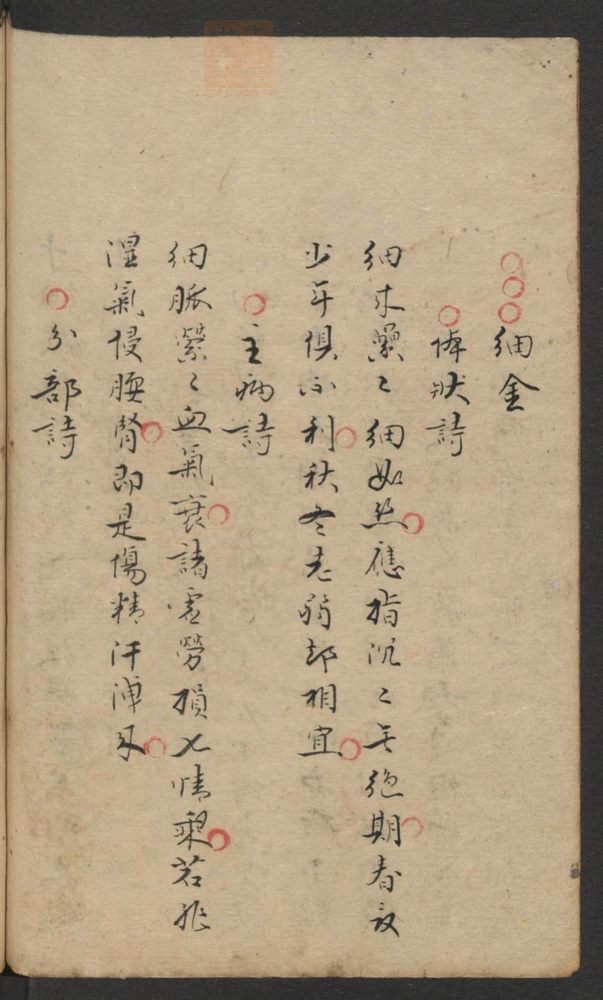 細金
体狀詩
細来纍々細如丝應指沉々无絕期春夏
少年俱不利秋冬老弱却相宜
主病詩
細脈縈々血氣衰諸虛勞損七情乖若非
湿氣侵腰腎即是傷精汗泄來
分部詩